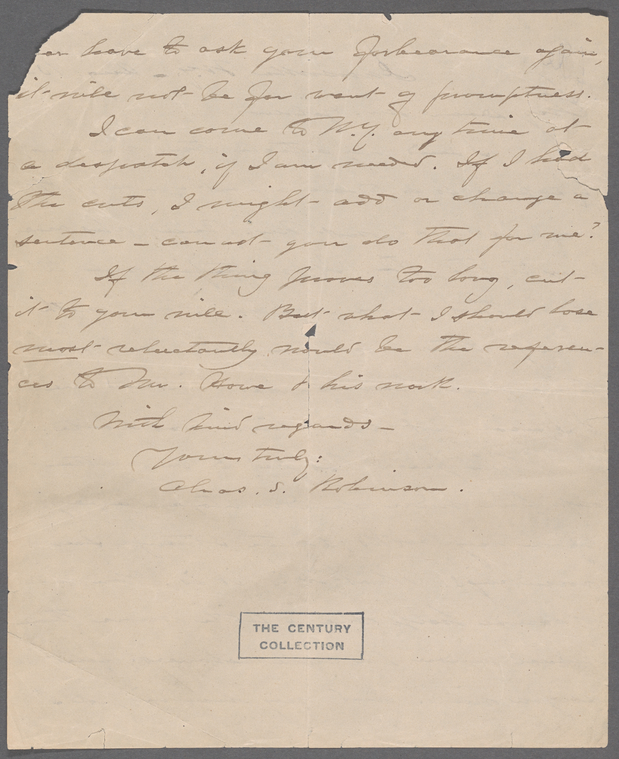 ever have to ask your forbearance again,
it will not be for want of promptness.
I can come to N.Y. any time at
a despatch, if I am needed. If I had
the cuts, I might add or change a
sentence – cannot you do that for me?
If the thing proves too long, cut
it to your will. But what I should lose
most reluctantly would be the referen-
ces to Mr. Howe & his work.
With kind regards –
Yours truly:
Chas. S. Robinson.
THE CENTURY
COLLECTION